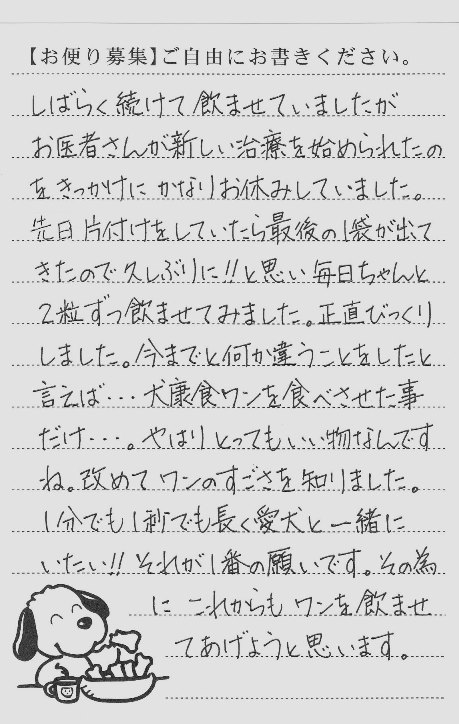 【お便り募集】ご自由にお書きください。
しばらく続けて飲ませていましたが
お医者さんが新しい治療を始められたの
をきっかけに かなりお休みしていました。
先日片付けをしていたら最後の1袋が出て
きたので久しぶりに!!と思い毎日ちゃんと
2粒ずつ飲ませてみました。正直びっくり
しました。今までと何か違うことをしたと
言えば・・・犬康食ワンを食べさせた事
だけ・・・。やはりとってもいい物なんです
ね。改めてワンのすごさを知りました。
1分でも1秒でも長く愛犬と一緒に
いたい!!それが1番の願いです。その為
に これからも ワンを飲ませ
てあげようと思います。